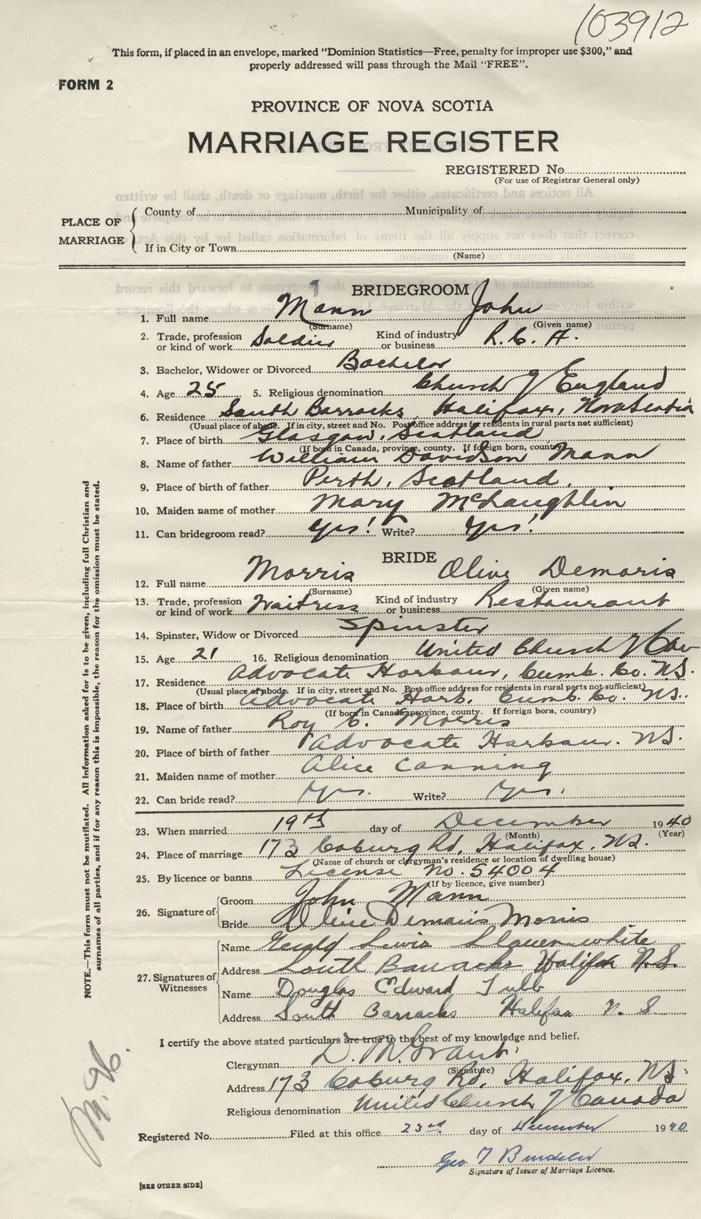 103912
This form, if placed in an envelope, marked "Dominion Statistics—Free, penalty for improper use $300," and
properly addressed will pass through the Mail "FREE".
FORM 2
PROVINCE OF NOVA SCOTIA
MARRIAGE REGISTER
REGISTERED No.
(For use of Registrar General only)
PLACE OF MARRIAGE
County of Municipality of
If in City or Town
(Name)
BRIDEGROOM
1. Full name Mann John
(Surname) (Given name)
2. Trade, profession or kind of work Soldier Kind of industry or business R.C.A.
3. Bachelor, Widower or Divorced Bachelor
4. Age 25 5. Religious denomination Church of England
6. Residence South Barracks, Halifax, Nova Scotia
(Usual place of abode. If in city, street and No. Post office address for residents in rural parts not sufficient)
7. Place of birth Glasgow, Scotland
(If born in Canada, province, county. If foreign born, country)
8. Name of father William Davidson Mann
9. Place of birth of father Perth, Scotland.
10. Maiden name of mother Mary McLaughlin
11. Can bridegroom read? Yes! Write? Yes!
BRIDE
12. Full name Morris Olive Demaris
(Surname) (Given name)
13. Trade, profession or kind of work Waitress Kind of industry or business Restaurant
14. Spinster, Widow or Divorced Spinster
15. Age 21 16. Religious denomination United Church of Can
17. Residence Advocate Harbour, Cumb. Co. N.S.
(Usual place of abode. If in city, street and No. Post office address for residents in rural parts not sufficient)
18. Place of birth Advocate Harb. Cumb. Co. N.S.
(If born in Canada, province, county. If foreign born, country)
19. Name of father Roy C. Morris
20. Place of birth of father Advocate Harbour. N.S.
21. Maiden name of mother Alice Canning
22. Can bride read? Yes. Write? Yes.
23. When married 19th day of December 1940
(Month) (Year)
24. Place of marriage 173 Coburg Rd. Halifax. N.S.
(Name of church or clergyman's residence or location of dwelling house)
25. By licence or banns License No. 54004
(If by licence, give number)
26. Signature of Groom John Mann
Bride Olive Demaris Morris
27. Signatures of Witnesses
Name Gerald Lewis white
Address South Barracks Halifax N.S.
Name Douglas Edward
Address South Barracks Halifax N. S
I certify the above stated particulars are true to the best of my knowledge and belief.
Clergyman D. M. Grant
(Signature)
Address 173 Coburg Rd, Halifax, N.S.
Religious denomination United Church of Canada
Registered No. Filed at this office 23rd day of December 1940
Geo T
Signature of Issuer of Marriage Licence.
[SEE OTHER SIDE]
NOTE.—This form must not be mutilated. All information asked for is to be given, including full Christian and
surnames of all parties, and if for any reason this is impossible, the reason for the omission must be stated.